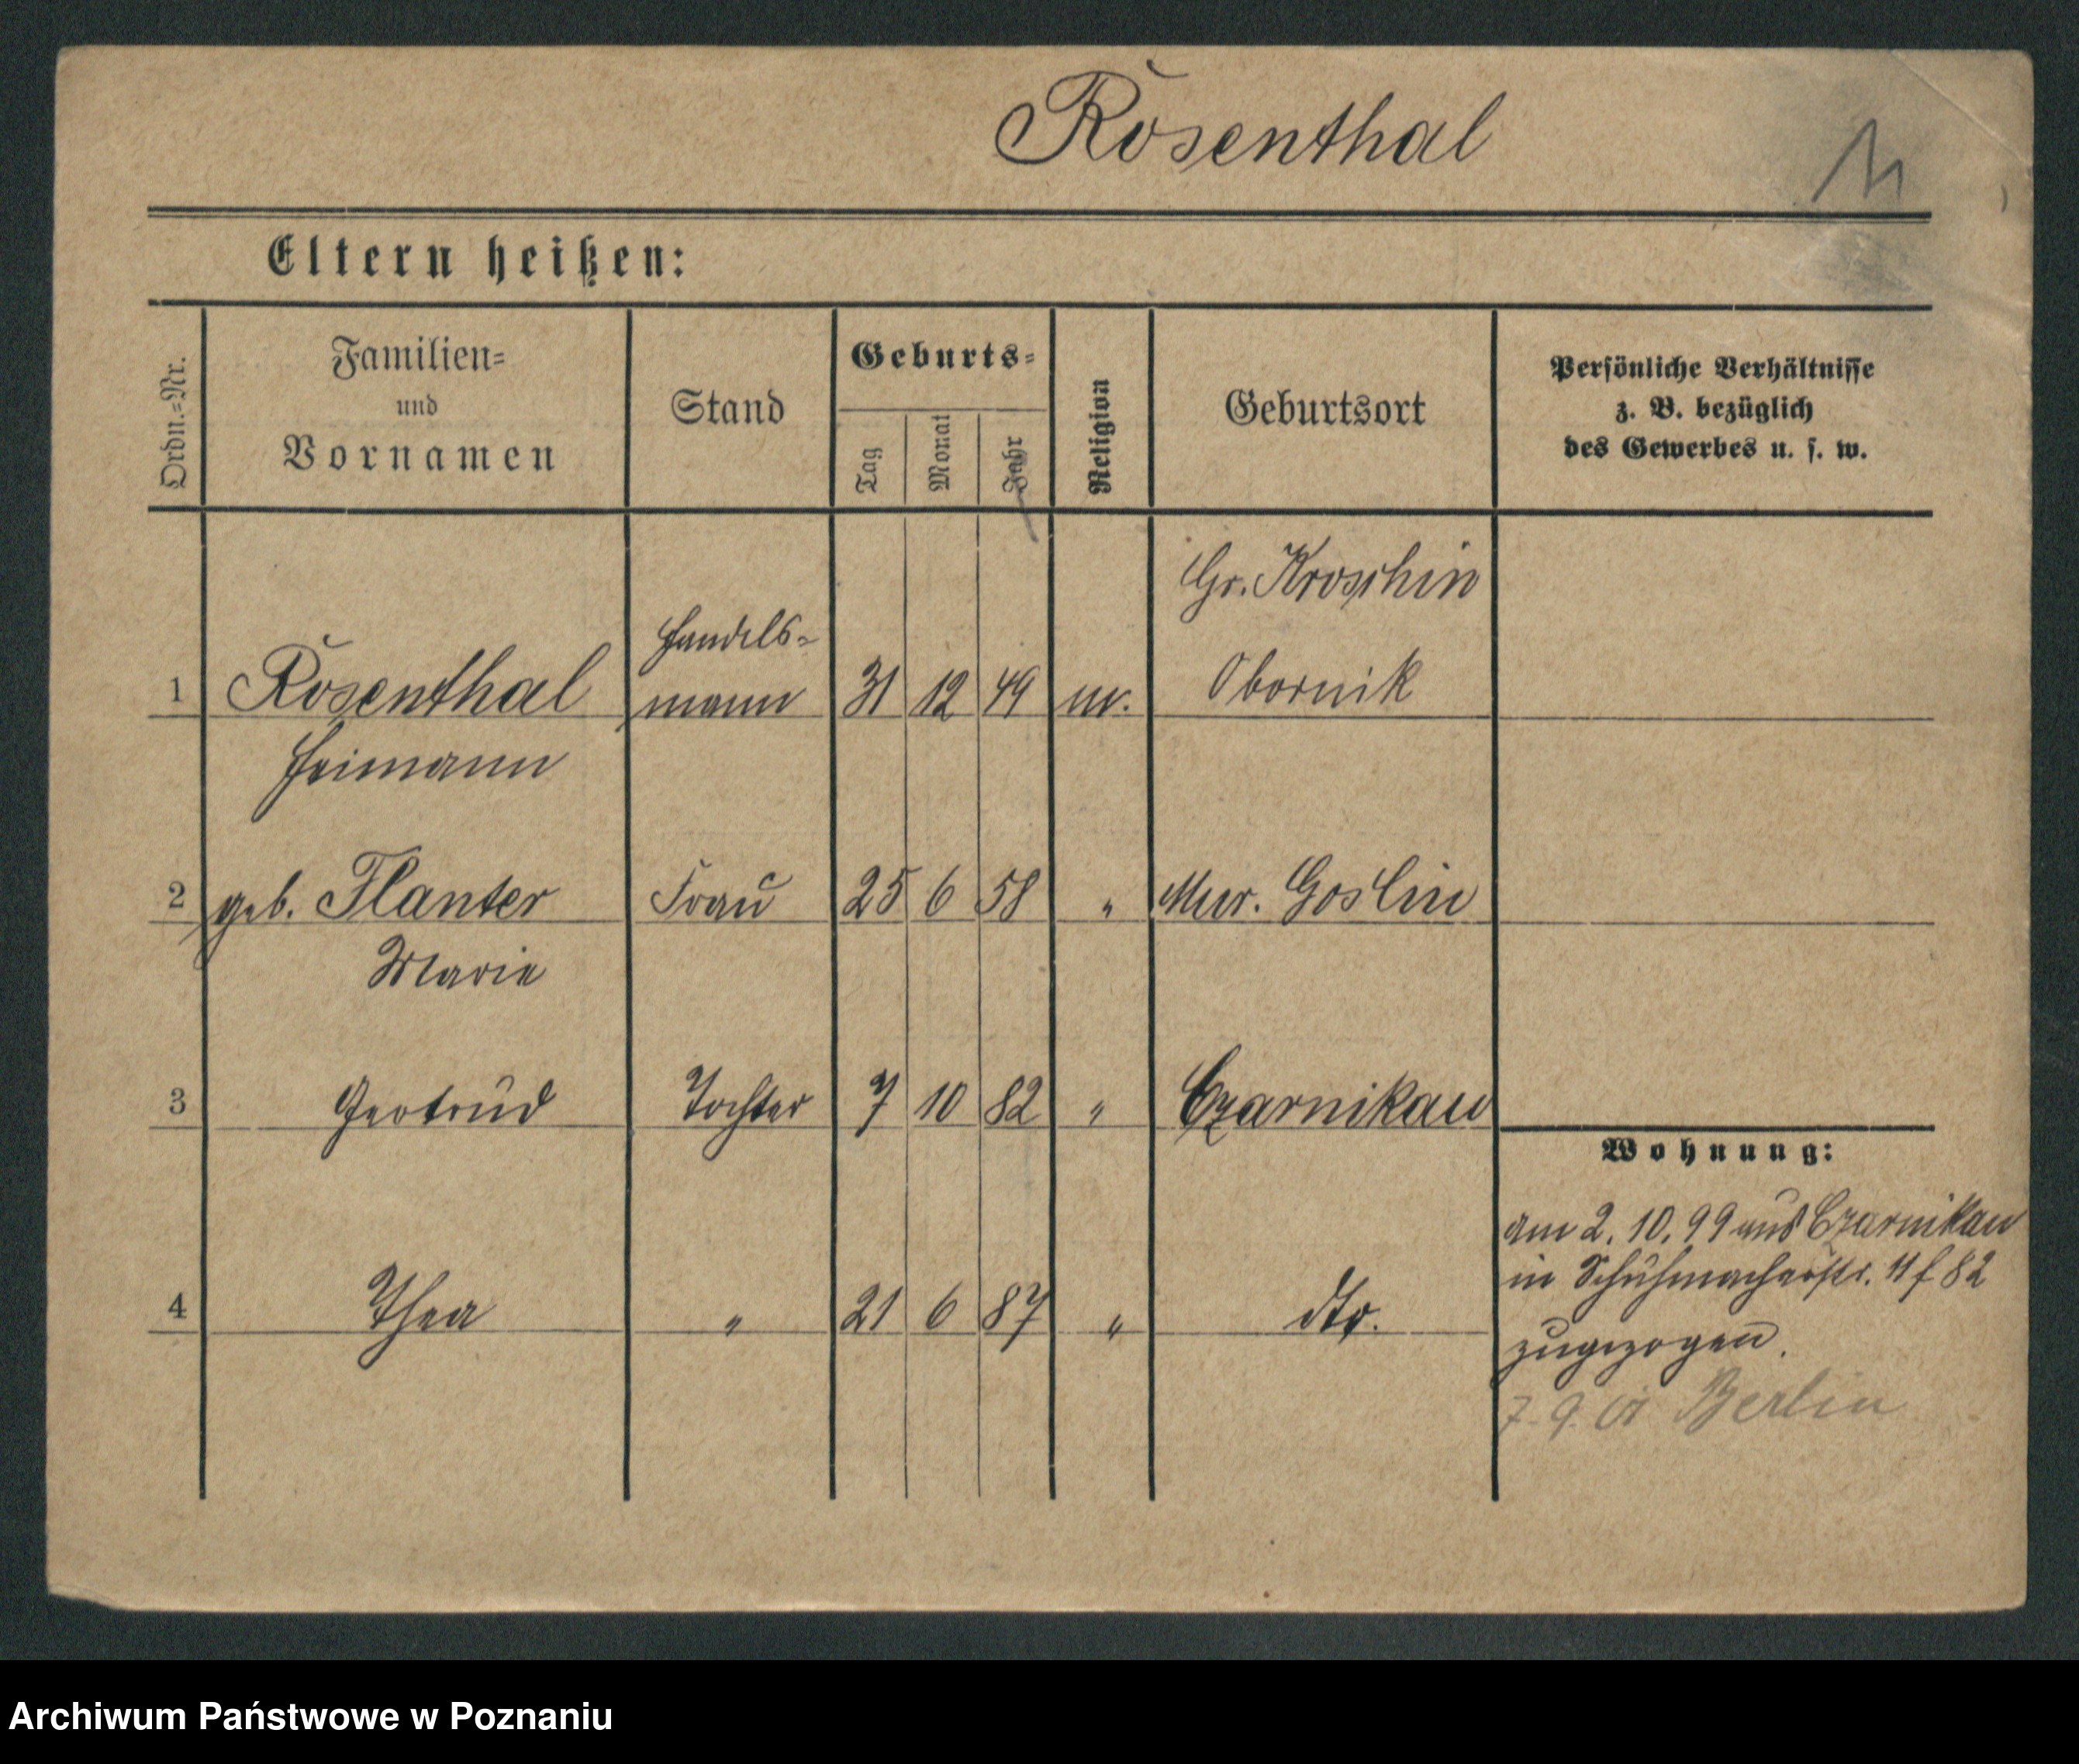 Rosenthal
Eltern heißen:
Ordn.=Nr.
Familien=
und
Vornamen
Stand
Geburts=
Tag
Monat
Jahr
Religion
Geburtsort
Persönliche Verhältnisse
z. B. bezüglich
des Gewerbes u. s. w.
Gr. Kroschin
Handels=
1 Rosenthal mann 31 12 49 m. Obornik
Heimann
2 geb. Flanter Frau 25 6 58 " Mur. Goslin
Marie
3 Gertrud Tochter 7 10 82 " Czarnikau
Wohnung:
am 2. 10. 99 aus Czarnikau
in Schuhmacherstr. 11 f 82
4 Thea " 21 6 87 " dto.
zugezogen.
7. 9. 01 Berlin
Archiwum Państwowe w Poznaniu